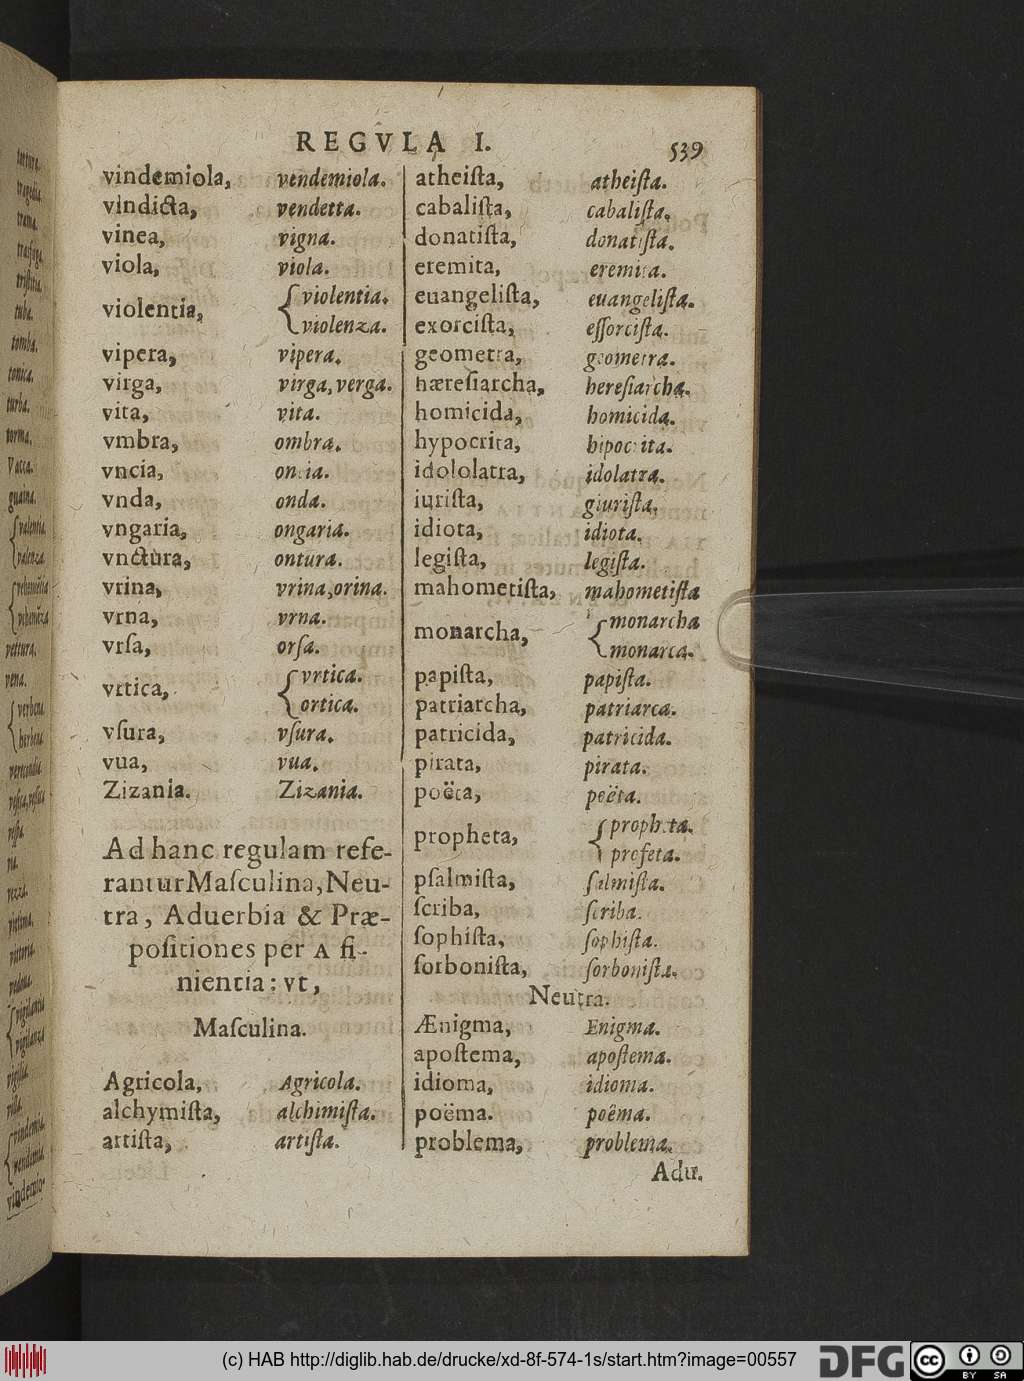 REGVLA I. 539
vindemiola, vendemiola.
vindicta, vendetta.
vinea, vigna.
viola, viola.
violentia, { violentia.
violenza.
vipera, vipera.
virga, virga, verga.
vita, vita.
vmbra, ombra.
vncia, oncia.
vnda, onda.
vngaria, ongaria.
vnctura, ontura.
vrina, vrina, orina.
vrna, vrna.
vrſa, orſa.
vrtica, { vrtica.
ortica.
vſura, vſura.
vua, vua.
Zizania. Zizania.
Ad hanc regulam refe-
rantur Maſculina, Neu-
tra, Aduerbia & Præ-
poſitiones per A fi-
nientia: vt,
Maſculina.
Agricola, Agricola.
alchymiſta, alchimiſta.
artiſta, artiſta.
atheiſta, atheiſta.
cabaliſta, cabaliſta.
donatiſta, donatiſta.
eremita, eremita.
euangeliſta, euangeliſta.
exorciſta, eſſorciſta.
geometra, geometra.
hæreſiarcha, hereſiarcha.
homicida, homicida.
hypocrita, hipocrita.
idololatra, idolatra.
iuriſta, giuriſta.
idiota, idiota.
legiſta, legiſta.
mahometiſta, mahometiſta
monarcha, { monarcha
monarca.
papiſta, papiſta.
patriarcha, patriarca.
patricida, patricida.
pirata, pirata.
poëta, poëta.
propheta, { propheta.
profeta.
pſalmiſta, ſalmiſta.
ſcriba, ſcriba.
ſophiſta, ſophiſta.
ſorboniſta, ſorboniſta.
Neutra.
Ænigma, Enigma.
apoſtema, apoſtema.
idioma, idioma.
poëma. poëma.
problema, problema.
Adu.
(c) HAB http://diglib.hab.de/drucke/xd-8f-574-1s/start.htm?image=00557
DFG
cc BY SA